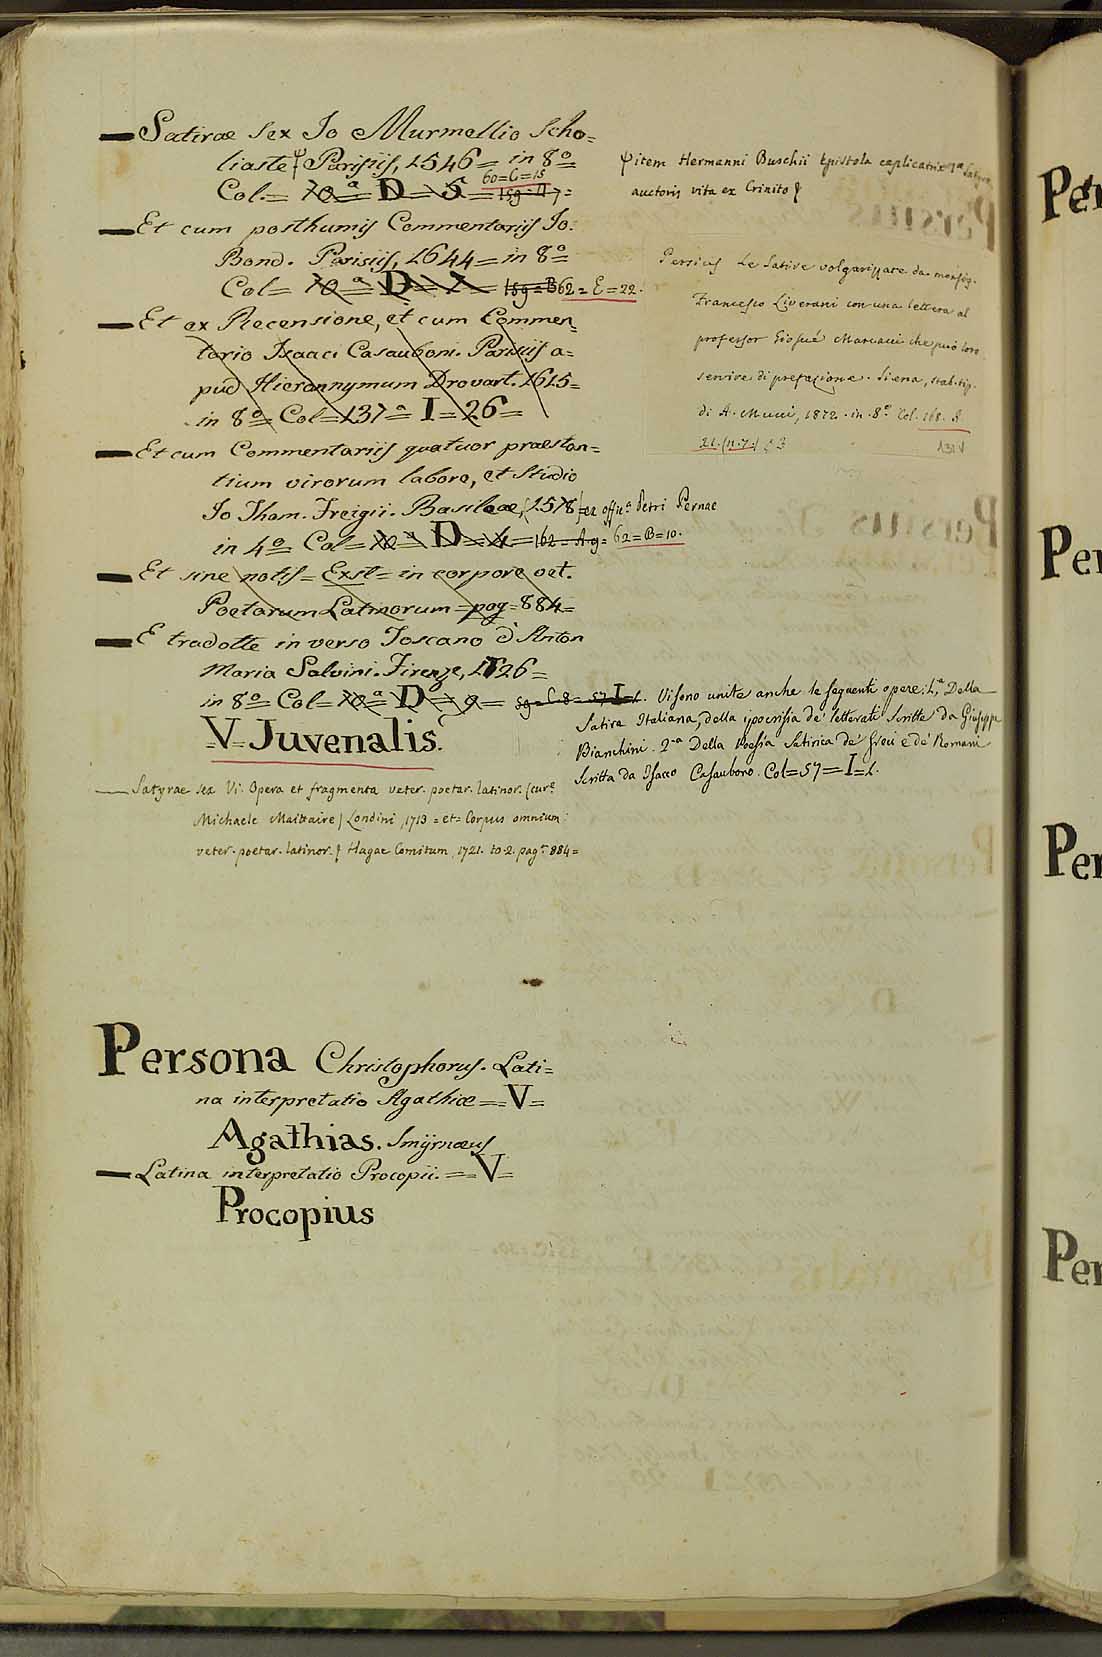 — Satirae sex Jo Murmellio Scho=
liaste ψ Parisiis, 1546 = in 8º =
60 = C = 15
Col. = 70ª = D = 5 = 159 = A 7 =
— Et cum posthumis Commentariis Jo:
Bond. Parisiis, 1644 = in 8º =
Col = 70ª = D = 7 = 159 = B 62 = E = 22.
— Et ex Recensione, et cum Commen=
tario Isaaci Casauboni. Parisiis a=
pud Hieronnymum Drovart. 1615 =
in 8º = Col = 137ª = I = 26 =
— Et cum Commentariis quatuor praestan=
tium virorum labore, et Studio
Jo Tham. Freigii. Basileae, (1578) ex offic.ª Petri Pernae
in 4º = Col = 70ª = D = 4 = 162 = A 9 = 62 = B = 10.
— Et sine notis = Exst = in corpore vet.
Poetarum Latinorum = pag = 884 =
— E tradotte in verso Toscano d'Anton
Maria Salvini. Firenze, 1726 =
in 8º = Col = 70ª = D = 9 = 59 = C 8 = 57 I = L.
V = Juvenalis.
— Satyrae sex Vi. Opera et fragmenta veter. poetar. latinor. (cur.e
Michaele Maittaire) Londini, 1713 = et = Corpus omnium
veter. poetar. latinor. Hagae Comitum, 1721. to. 2. pag.e 884 =
Persona Christophorus. Lati=
na interpretatio Agathiae == V =
Agathias. Smÿrnaeus
— Latina interpretatio Procopii. == V =
Procopius
ψ item Hermanni Buschii Epistola explicatrix 1ae Satyrae
auctoris vita ex Crinito
Persius Le Satire volgarizzate da monsig.
Francesco Liverani con una lettera al
professor Giosuè Carducci che può loro
servire di prefazione. Siena, stab. tip.
di A. Mucci, 1872. in. 8º Col. 168. A
21. (n. 7.)
131 V
Vi sono unite anche le seguenti opere: 1.ª Della
Satira Italiana, della ipocrisia de' letterati scritte da Giuseppe
Bianchini. 2.ª Della Poesia Satirica de' Greci e de' Romani
scritta da Isacco Casaubono. Col = 57 = I = L.
Per
Per
Per
Per